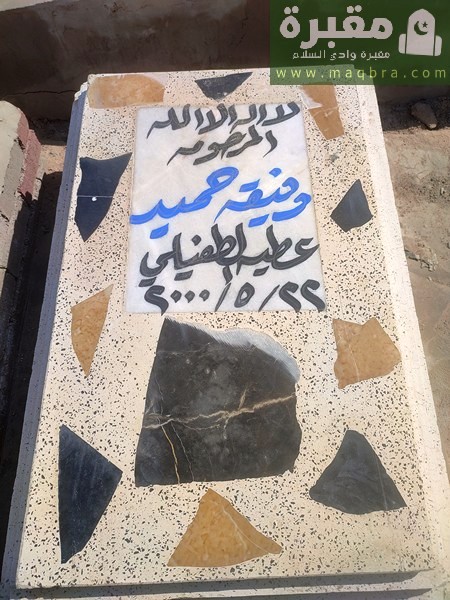 مقبرة
مقبرة وادي السلام
www.maqbra.com
لا اله الا الله
المرحومه
وفيقه حميد
عطيه الطفيلي
٢٠٠٠/٥/٢٢